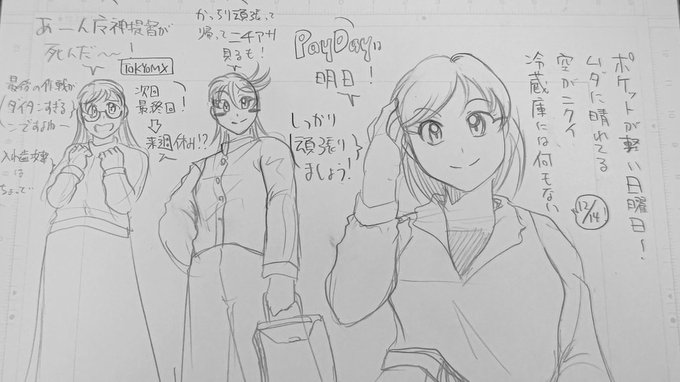 ポケットが軽い日曜日!
ムダに晴れてる
空がニクイ
冷蔵庫には何もない
12/14
PayDayは
明日!
しっかり
頑張り
ましょう!
かっちり頑張って
帰ってニチアサ
見るも!
次回
最終回!
⇩
来週休み!?
TOKYO MX
あーん
死んだ〜〜
最後の作戦が
タイタンすぎる
ンですよねー
ちょって…